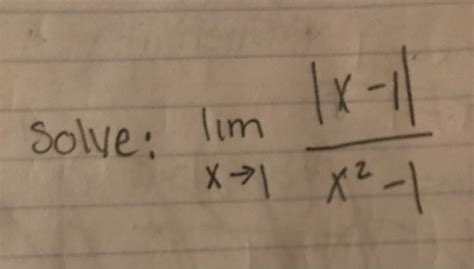 Solve: lim x→1 |x-1| / x²-1